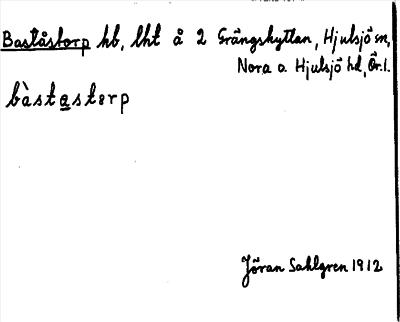 Baståstorp hb, lht å 2 Grängshyttan, Hjulsjö sn,
Nora o. Hjulsjö hd, Ör. l.
bàstastərp
Jöran Sahlgren 1912